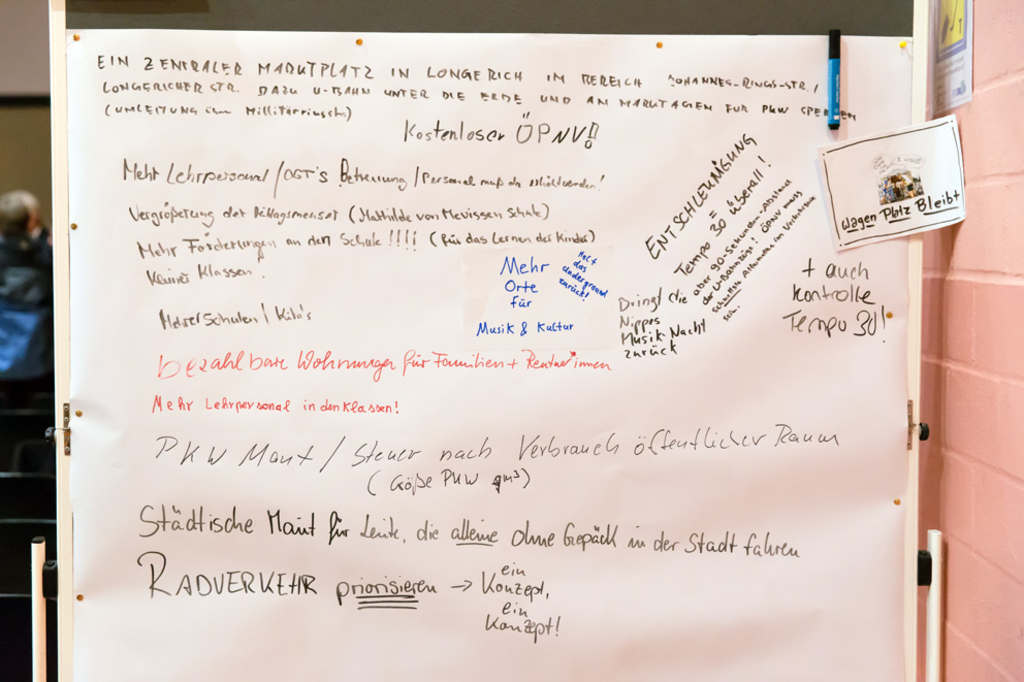 EIN ZENTRALER MARKTPLATZ IN LONGERICH IM BEREICH JOHANNES-RINGS-STR. /
LONGERICHER STR. DAZU U-BAHN UNTER DIE ERDE UND AN MARKTAGEN FÜR PKW SPERREN
(UMLEITUNG über Millitärringstr)
Kostenloser ÖPNV!!
Mehr Lehrpersonal / OGTS Betreuung / Personal muß da
Vergrößerung der Mittagsmensa (Mathilde von Mevissen Schule)
Mehr Förderungen an den Schule !!!! (für das Lernen der Kinder)
Kleiner Klassen!
Schulen / Kita's
Mehr
Orte
für
Musik & Kultur
Macht
das
underground
zurück!
ENTSCHLEUNIGUNG
Tempo 30 überall!
aber 90-Sekunden-Abstand
der U-Bahnzüge! ÖPNV muss
schnellste Alternative im Verkehrsmix
sein.
Bringt die
Nippes
Musik-Nacht
zurück
Wagen Platz Bleibt
+ auch
Kontrolle
Tempo 30!
bezahlbare Wohnungen für Familien + Rentner*innen
Mehr Lehrpersonal in den Klassen!
PKW Maut / Steuer nach Verbrauch öffentlicher Raum
(Größe PKW qm³)
Städtische Maut für Leute, die alleine ohne Gepäck in der Stadt fahren
RADVERKEHR priorisieren → ein
Konzept,
ein
Konzept!